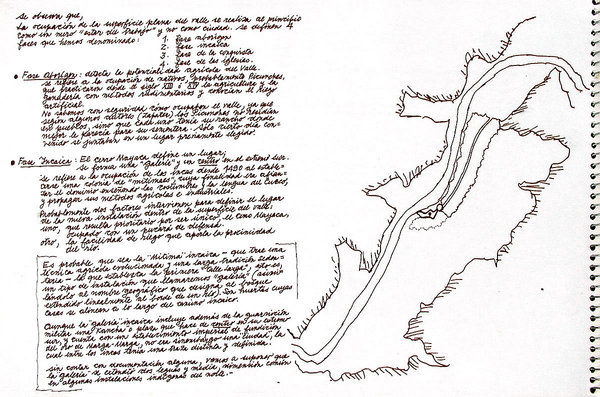 se observa que,
la ocupación de la superficie plana del valle se realiza al principio
como un mero "estar del trabajo" y no como ciudad. se definen 4
fases que hemos denominado:
1. fase aborigen
2. fase incaica
3. fase de la conquista
4. fase de las iglesias.
• Fase Aborigen: detecta la potencialidad agrícola del valle.
se refiere a la ocupación de nativos, probablemente Picunches,
que practicaron desde el siglo XIII ó XIV la agricultura y la
ganadería con métodos rudimentarios y conocían el riego
artificial.
No sabemos con seguridad cómo ocupaban el valle, ya que
según algunos autores (Zapater) los Picunches no residían
en pueblos, sino que cada uno tenía su rancho donde
mejor le parecía para su sementera. Sólo cierto día con-
venido se juntaban en un lugar previamente elegido.
• Fase Incaica: El cerro Mayaca define un lugar;
se forma una "galería" y un centro en el extremo sur.
se refiere a la ocupación de los incas desde 1480 al estable-
cerse una colonia de "mitimaes", cuya finalidad es afian-
zar el dominio enseñando las costumbres y la lengua del Cuzco,
y propagar sus métodos agrícolas e industriales.
Probablemente dos factores intervienen para definir el lugar
de la nueva instalación dentro de la superficie del valle:
uno, que resulta prioritario por ser único; el cerro Mayaca,
ocupado con un pucará de defensa.
otro, la facilidad de riego que aporta la proximidad
del río.
Es probable que sea la "mitima" incaica - que trae una
técnica agrícola evolucionada y una larga tradición seden-
taria - la que establezca la primera "calle larga", esto es,
un tipo de instalación que llamaremos "galería" (asimi-
lándolo al nombre geográfico que designa al bosque
extendido linealmente al borde de un río). Son huertas cuyas
casas se alinean a lo largo del camino incaico.
Aunque la "galería" incaica incluye además de la guarnición
militar una kancha o plaza que hace de centro en su extremo
sur, y cuenta con un establecimiento imperial de fundición
del oro de Marga-Marga, no era sin embargo una ciudad, la
cual entre los incas tenía una traza distinta y definida.
sin contar con documentación alguna, vamos a suponer que
la galería se extendió dos leguas y media, dimensión común
en algunas instalaciones indígenas del norte.-